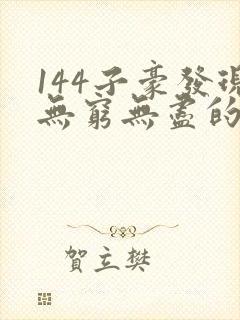 144子豪發現
無窮無盡的
賀立樊